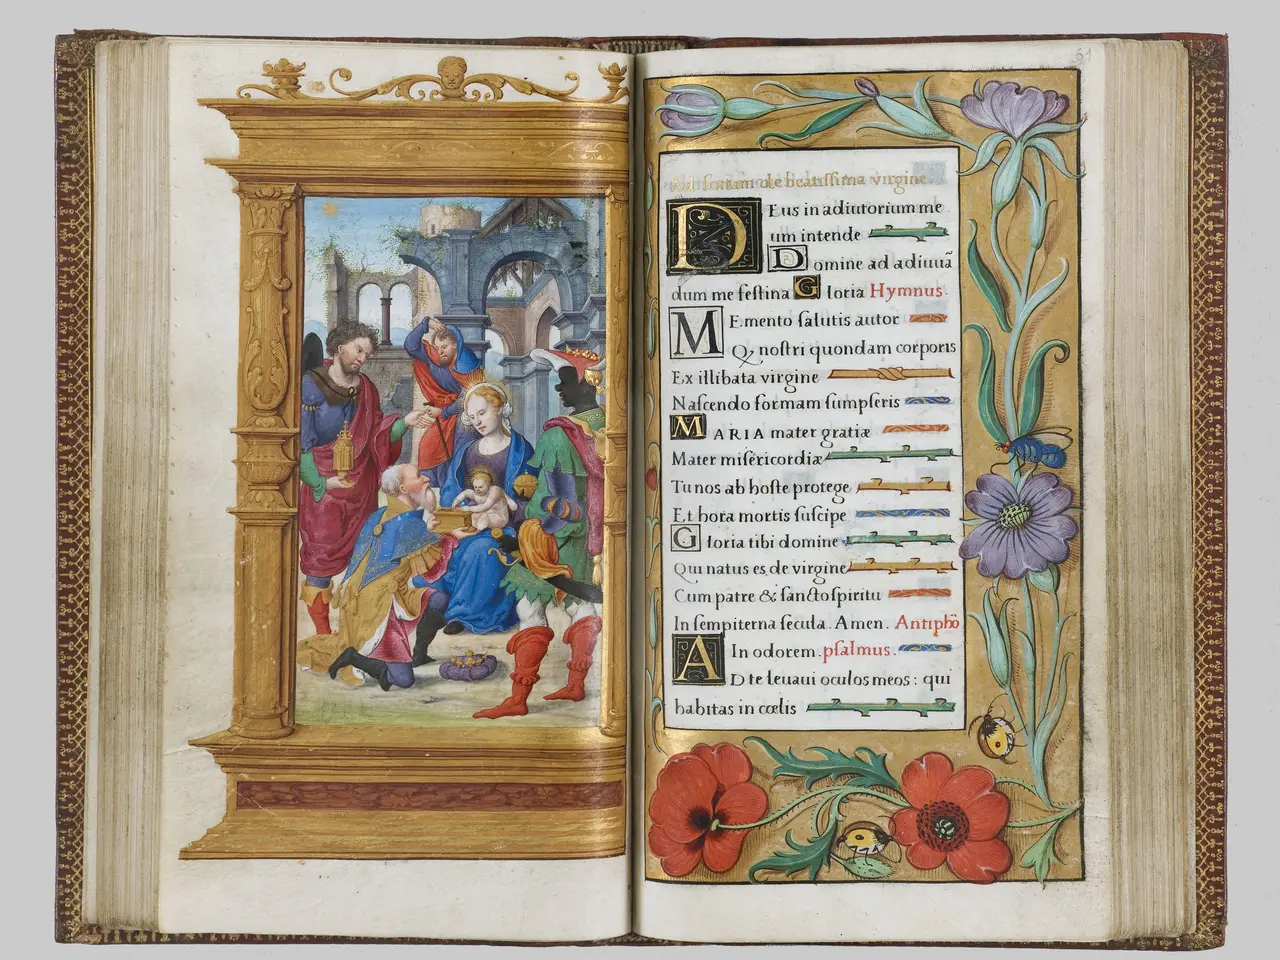 61
Ad sextam de beatissima virgine.
DEus in adiutorium me
um intende
Domine ad adiuuã
dum me festina Gloria Hymnus.
MEmento salutis autor
Q nostri quondam corporis
Ex illibata virgine
Nascendo formam sumpseris
MARIA mater gratiæ
Mater misericordiæ
Tu nos ab hoste protege
Et hora mortis suscipe
Gloria tibi domine
Qui natus es de virgine
Cum patre & sancto spiritu
In sempiterna secula. Amen. Antiphõ
In odorem. psalmus.
AD te leuaui oculos meos: qui
habitas in cœlis